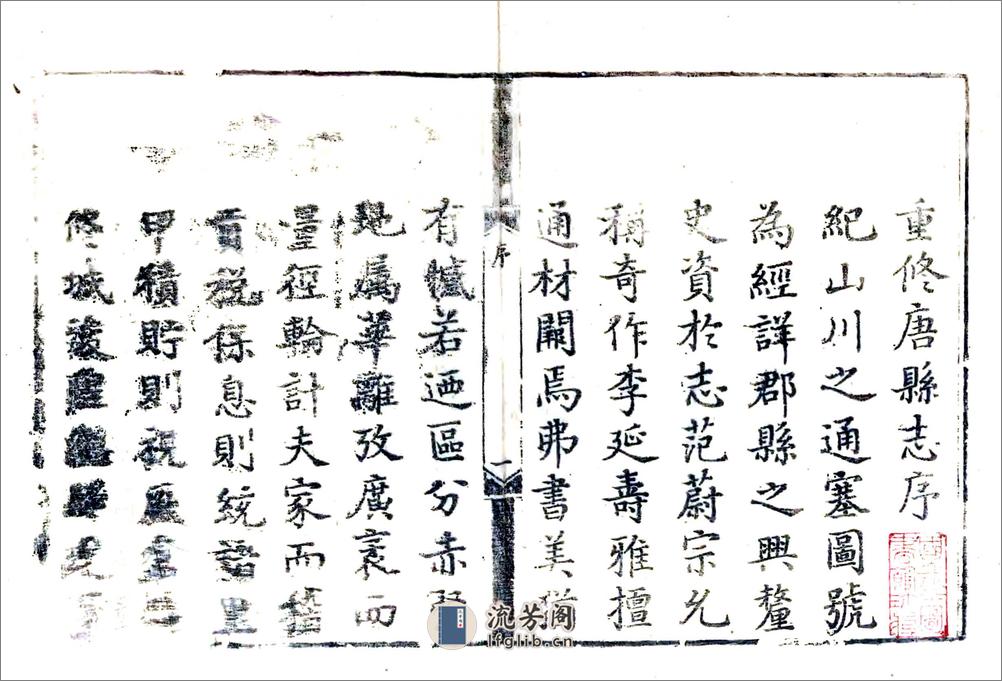 重修唐縣志序
紀山川之通塞圖號
為經詳郡縣之興釐
史資於志范蔚宗允
稱奇作李延壽雅擅
通材闕焉弗書美猶
序
一
有憾若迺區分赤縣
地属華離攷廣袤而
量徑輪計夫家而稽
貢稅保息則統諸里
甲積貯則視
修城
流芳阁
lfglib.cn